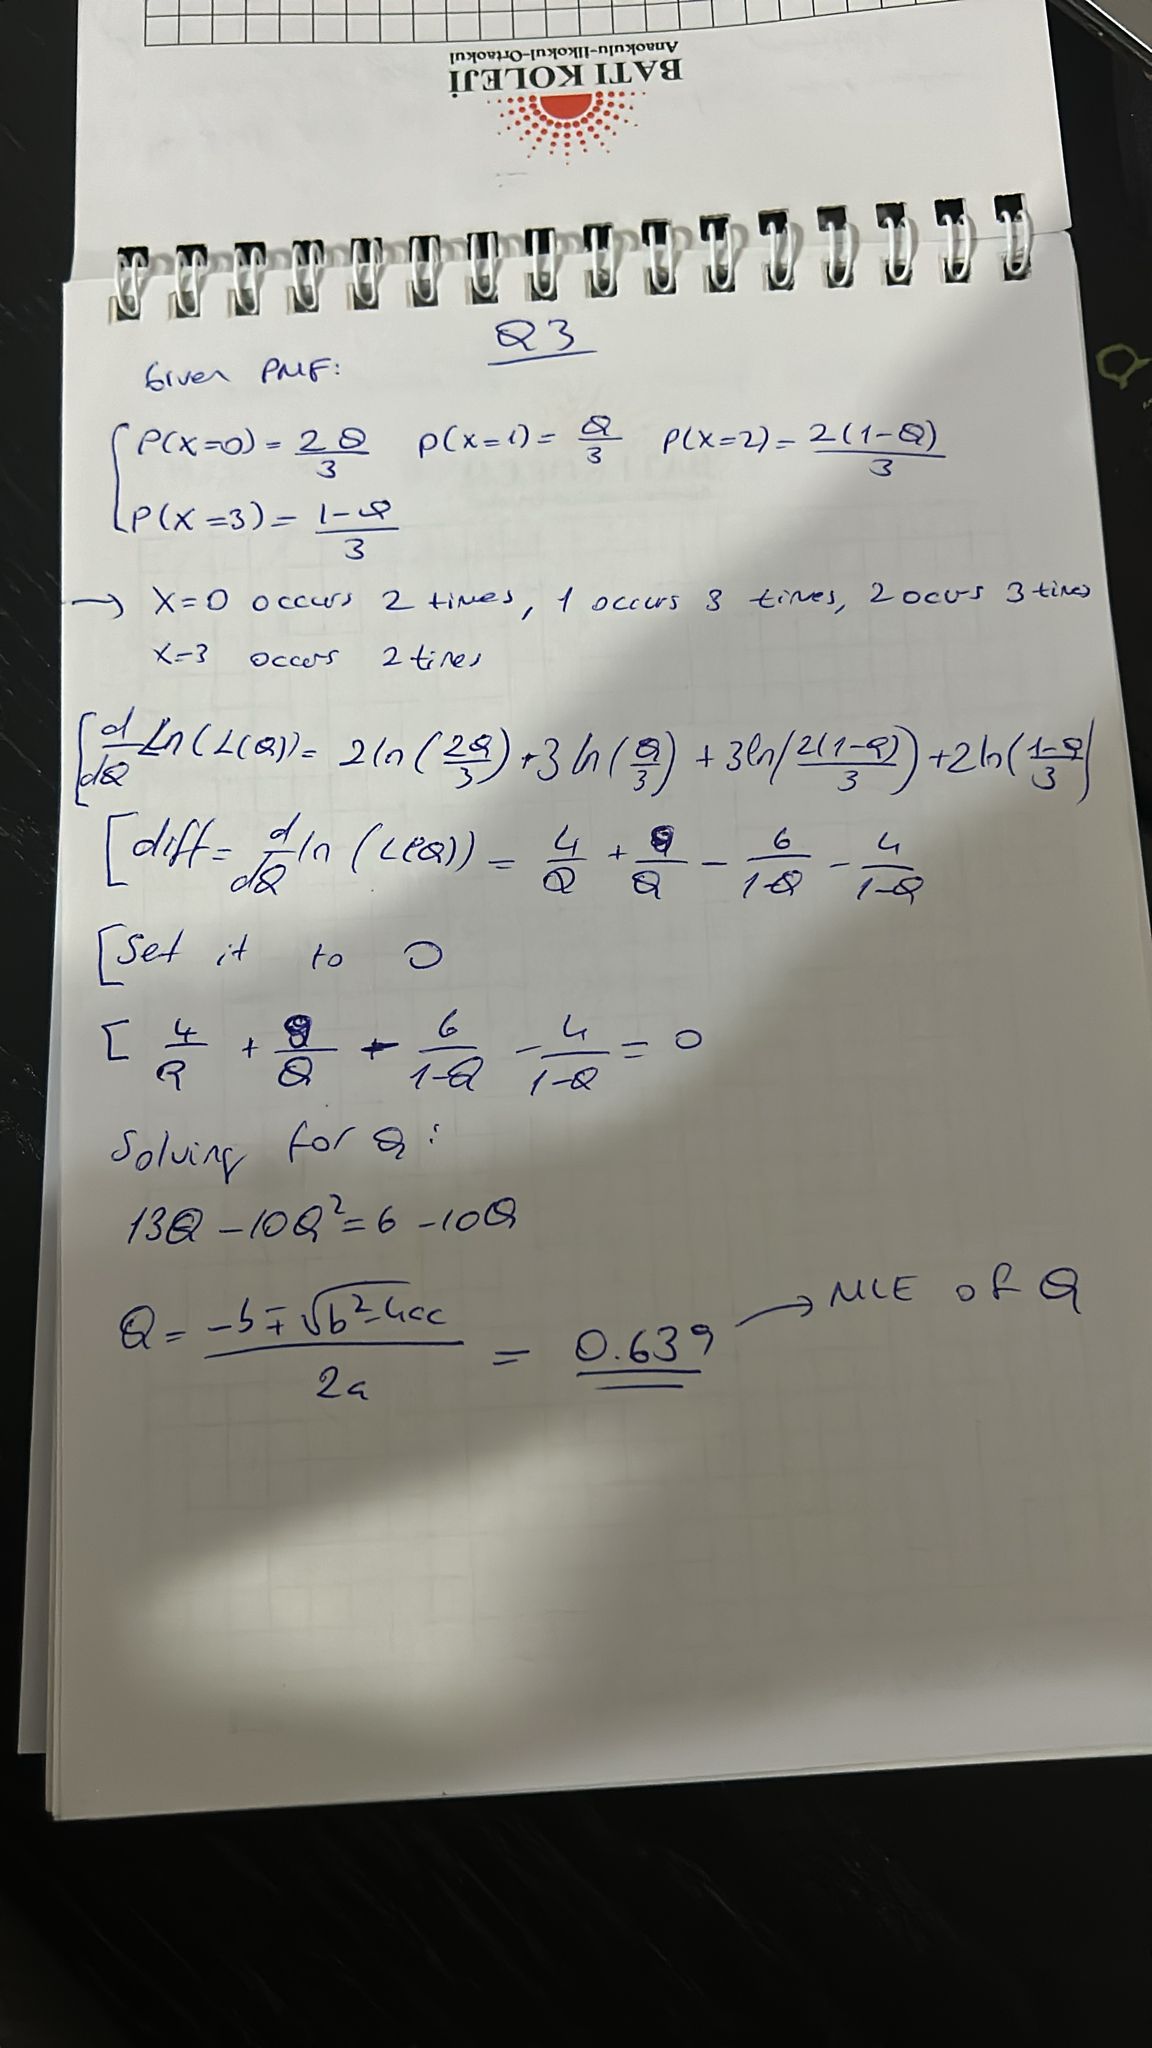 BATI KOLEJİ
Anaokulu-İlkokul-Ortaokul
Q3
Given PMF:
P(X=0) = 2Q/3 P(X=1) = Q/3 P(X=2) = 2(1-Q)/3
P(X=3) = 1-Q/3
→ X=0 occurs 2 times, 1 occurs 3 times, 2 ocurs 3 times
X=3 occers 2 times
[d/dQ Ln(L(Q)) = 2ln(2Q/3) + 3ln(Q/3) + 3ln(2(1-Q)/3) + 2ln(1-Q/3)
[diff = d/dQ ln(L(Q)) = 4/Q + 9/Q - 6/1-Q - 4/1-Q
[Set it to 0
[4/Q + 9/Q - 6/1-Q - 4/1-Q = 0
Solving for Q:
13Q - 10Q² = 6 - 10Q
Q = -b ∓ √b²-4ac/2a = 0.639 → MLE of Q